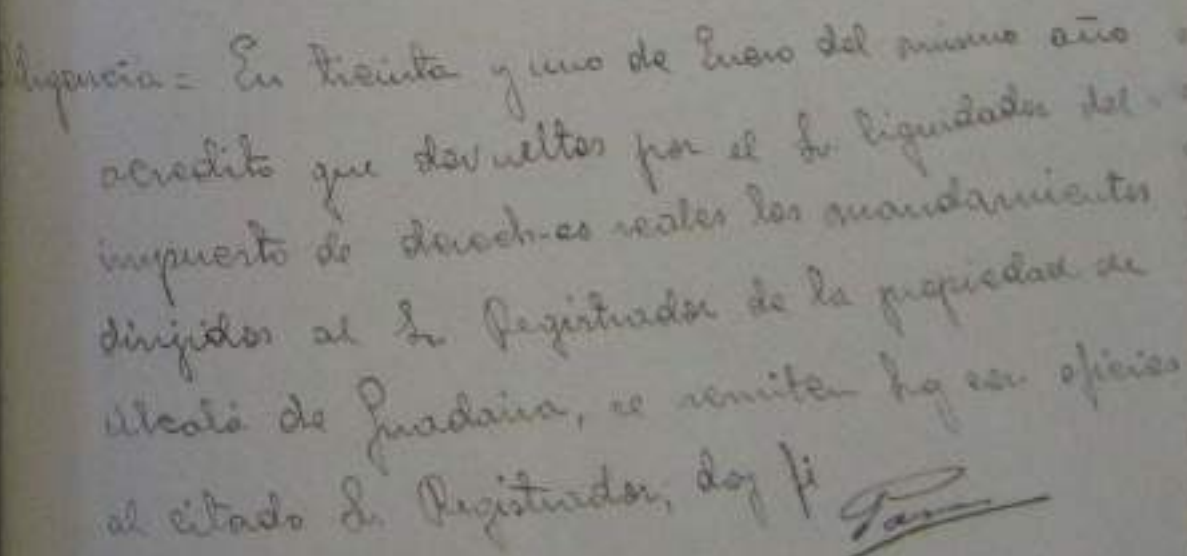 Diligencia = En treinta y uno de Enero del mismo año
acredito que devueltos por el Sr. liquidador del
impuesto de derechos reales los mandamientos
dirigidos al Sr. Registrador de la propiedad de
Alcalá de Guadaira, se remiten hoy con oficios
al citado Sr. Registrador, doy fé